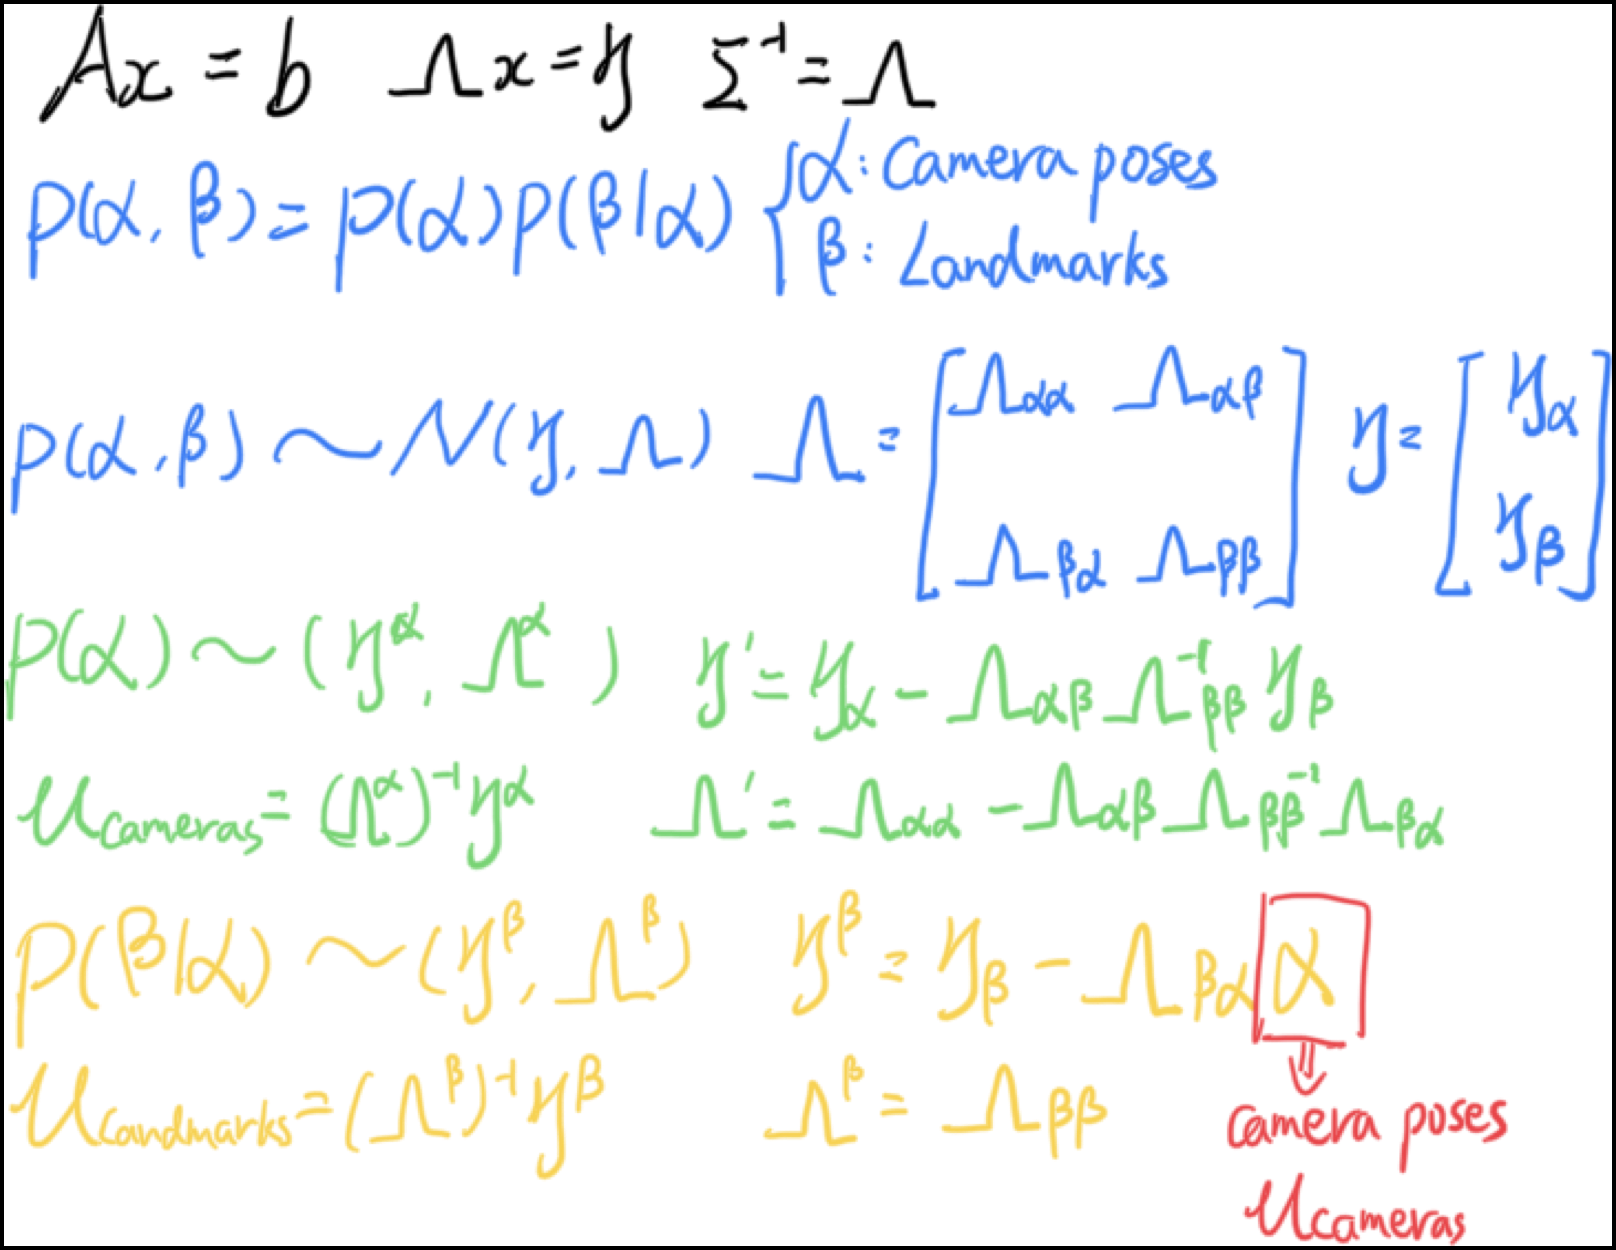 Ax = b   Λx = η   Σ⁻¹ = Λ
p(α, β) = p(α)p(β|α) { α: Camera poses
β: Landmarks
p(α, β) ~ N(η, Λ)   Λ = [ Λαα Λαβ   η = [ ηα
Λβα Λββ ]   ηβ ]
p(α) ~ (η^α, Λ^α)   η′ = ηα − Λαβ Λββ⁻¹ ηβ
μcameras = (Λ^α)⁻¹ η^α   Λ′ = Λαα − Λαβ Λββ⁻¹ Λβα
p(β|α) ~ (η^β, Λ^β)   η^β = ηβ − Λβα α
μLandmarks = (Λ^β)⁻¹ η^β   Λ^β = Λββ
⇓
camera poses
μcameras